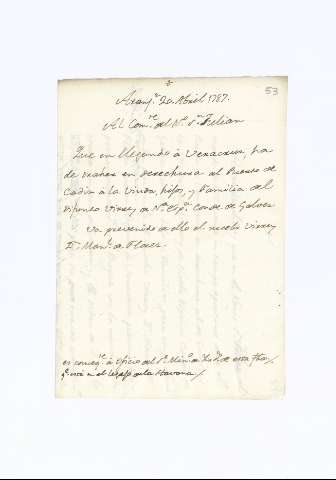 53
Aranj.z 20. Abril 1787.
Al Com.te del N.o S.n Julian
Que en llegando à Veracruz, ha
de traher en derechura al Puerto de
Cadiz à la Viuda, hijos, y familia del
difunto Virrey de N.a Esp.a Conde de Galvez
Va prevenido de ello el nuebo Virrey
D.n Man.l de Flores.
es conseq.te à oficio del S.r Min.o de de esta fha,
q.e está en el legajo de la Havana